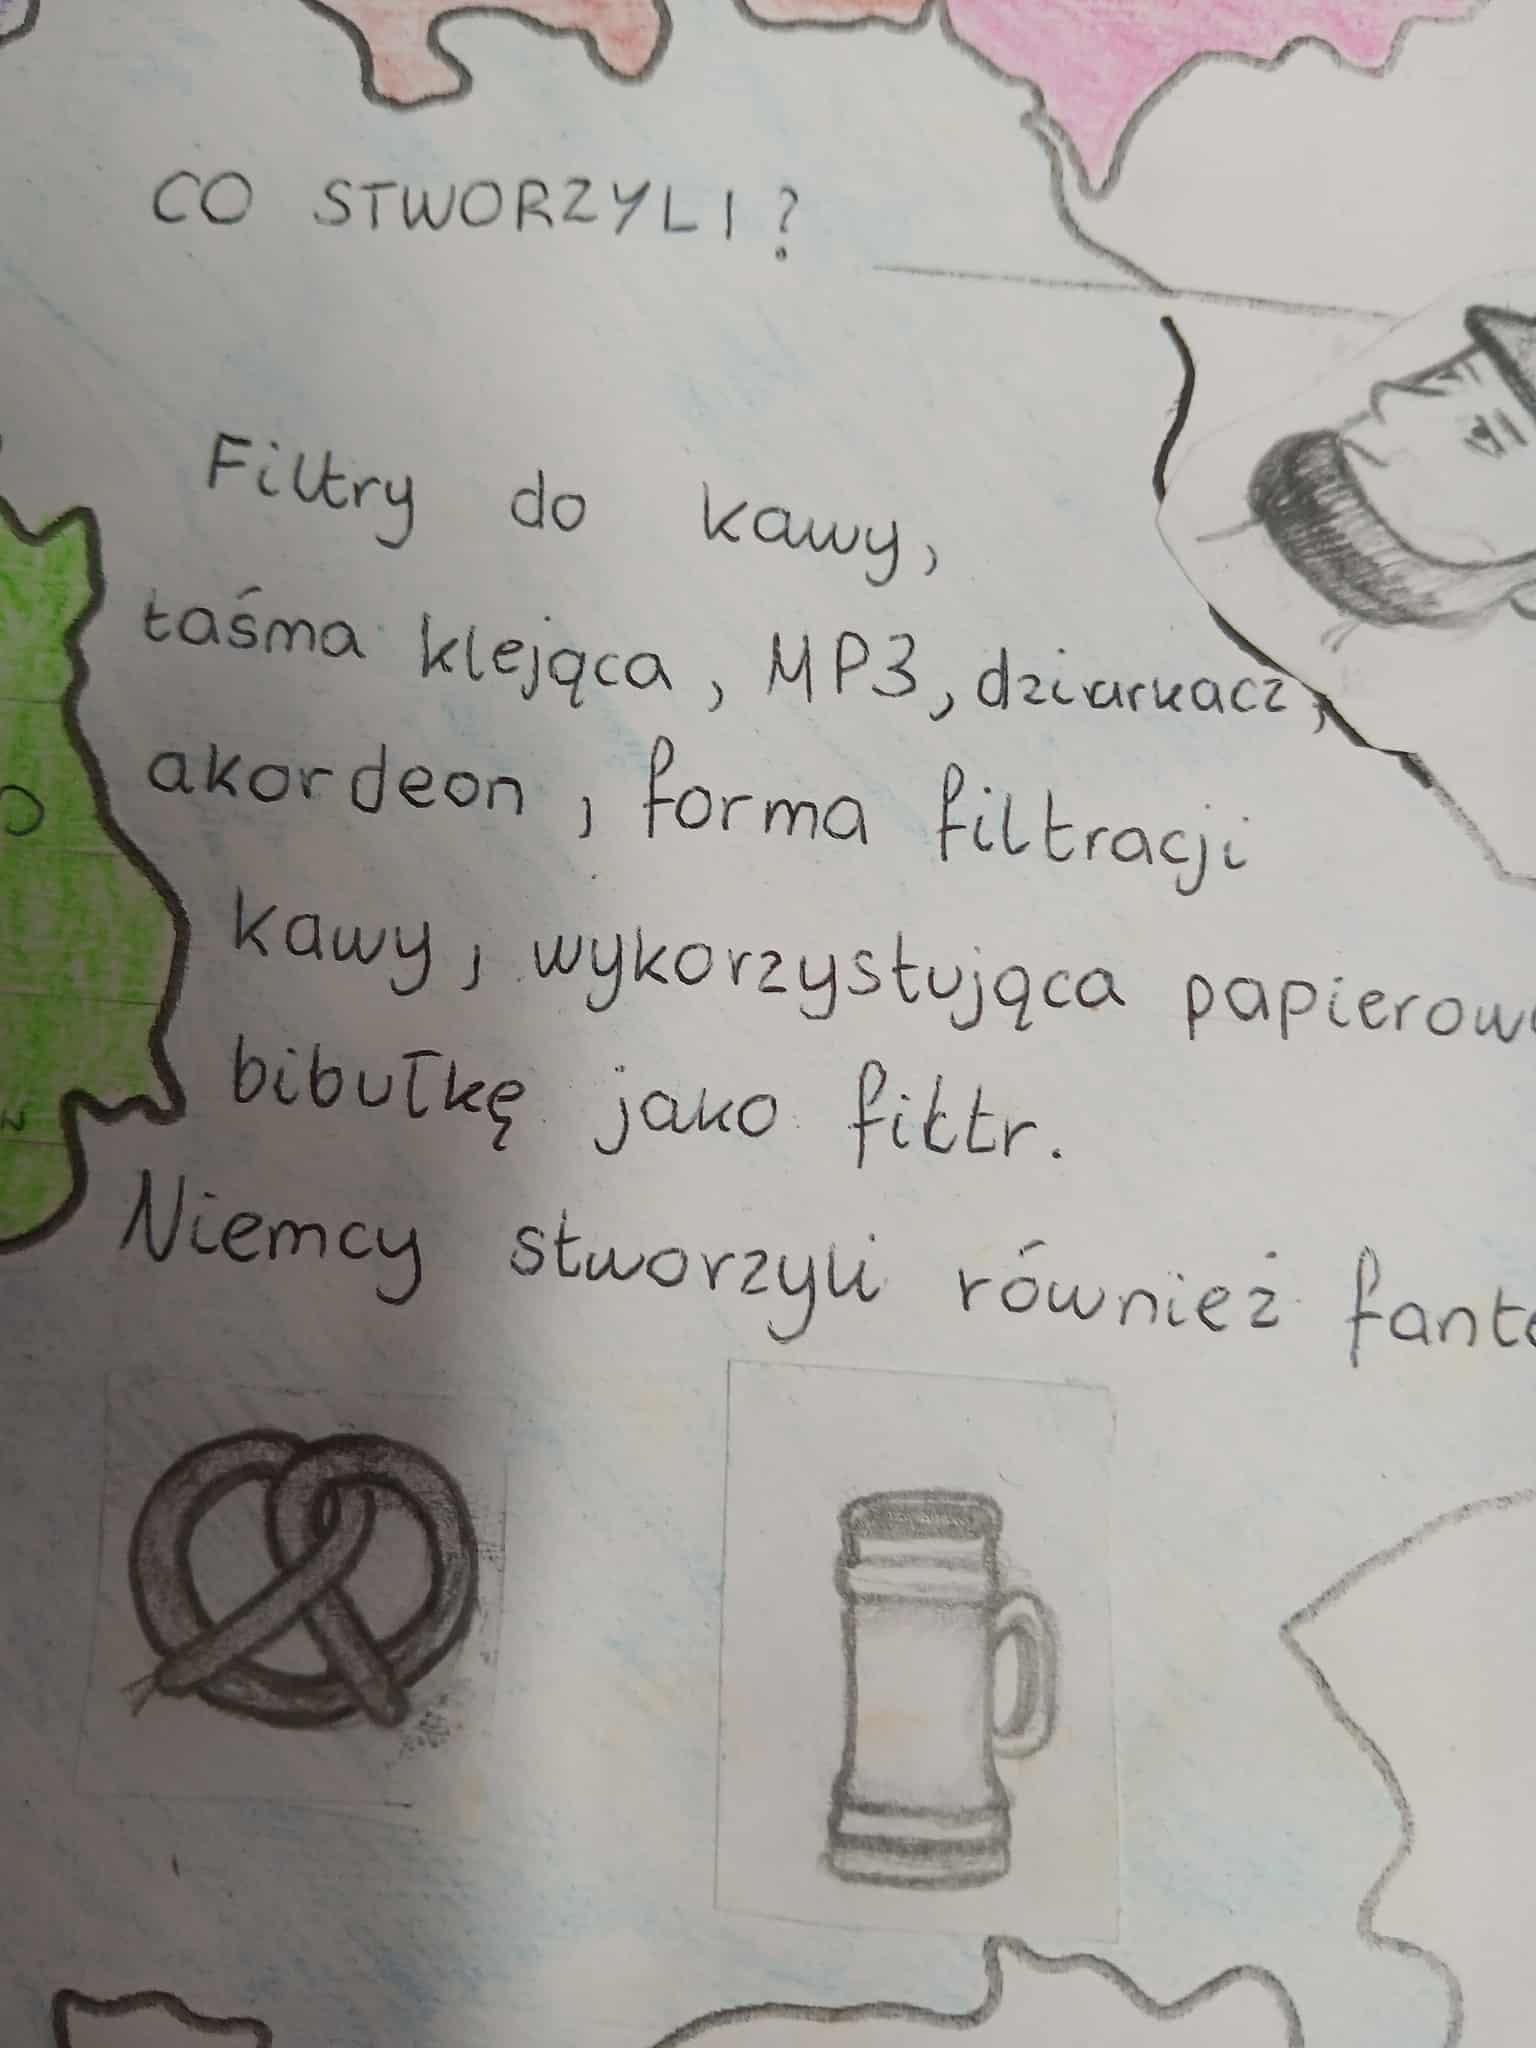 CO STWORZYLI?
Filtry do kawy,
taśma klejąca, MP3, dziurkacz,
akordeon, forma filtracji
kawy, wykorzystująca papierow
bibułkę jako filtr.
Niemcy stworzyli również fant